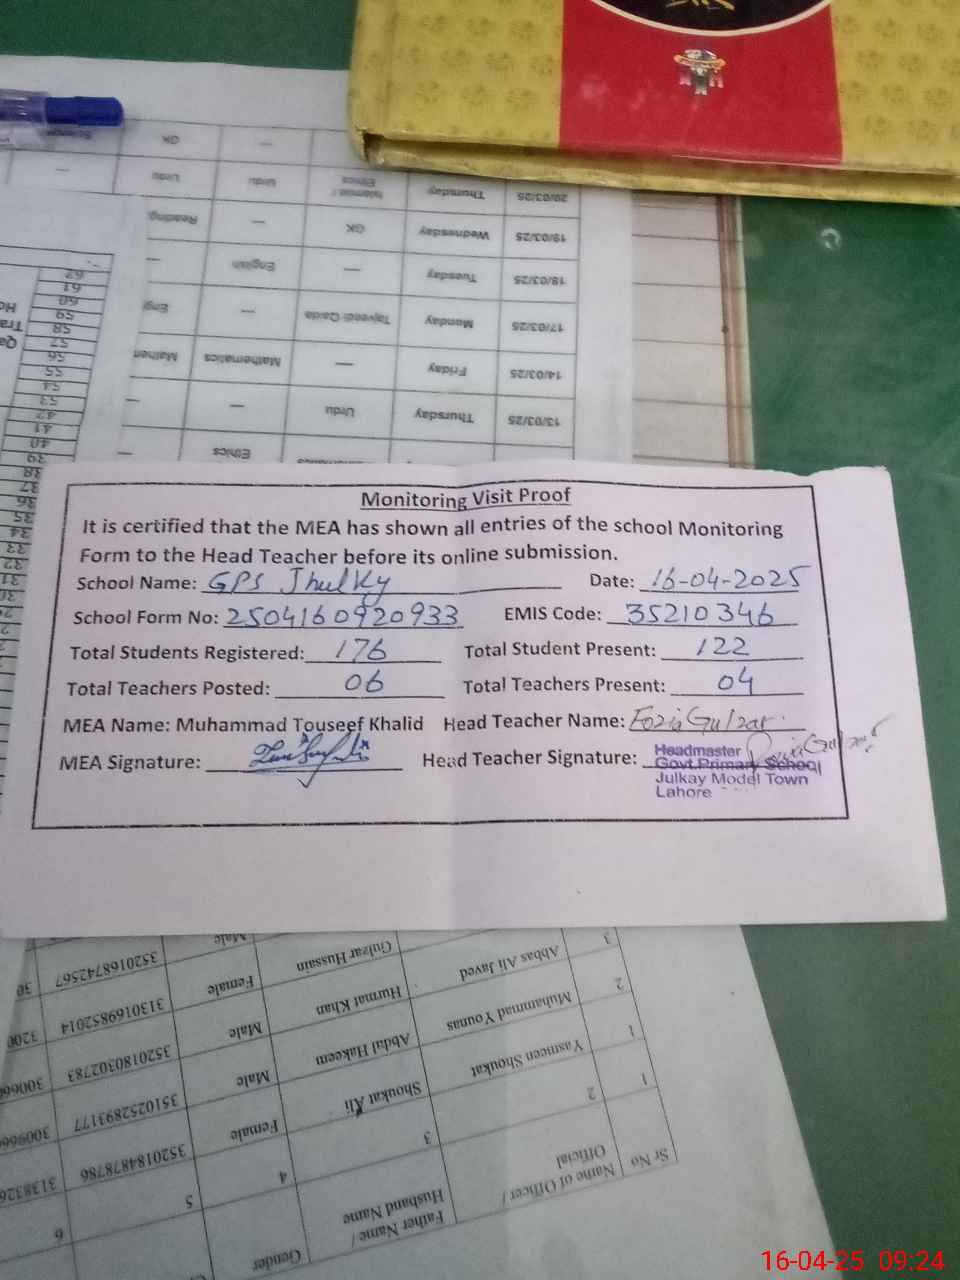 Science GK —
— Urdu Urdu Islamiat / Ethics Thursday 20/03/25
Reading — GK Wednesday 19/03/25
— English — Tuesday 18/03/25
Eng — Tajveedi Qaida Monday 17/03/25
Mathem Mathematics — Friday 14/03/25
— — Urdu Thursday 13/03/25
— Ethics
62
61
60
59
58
57
56
55
54
53
42
41
40
39
38
37
36
35
34
33
32
31
Monitoring Visit Proof
It is certified that the MEA has shown all entries of the school Monitoring
Form to the Head Teacher before its online submission.
School Name: GPS Jhulky Date: 16-04-2025
School Form No: 2504160920933 EMIS Code: 35210346
Total Students Registered: 176 Total Student Present: 122
Total Teachers Posted: 06 Total Teachers Present: 04
MEA Name: Muhammad Touseef Khalid Head Teacher Name: Fozia Gulzar
MEA Signature: Head Teacher Signature:
Headmaster
Govt.Primary School
Julkay Model Town
Lahore
Sr No Name of Officer / Official Father Name / Husband Name Gender
1 2 3 4 5 6
1 Yasmeen Shoukat Shoukat Ali Female 3520184878786 3138326
2 Muhammad Younas Abdul Hakeem Male 3510252893177 3009666
3 Abbas Ali Javed Hurmat Khan Male 3520180302783 300666
Gulzar Hussain Female 3130169852014 3200
Male 3520168742567 30
16-04-25 09:24